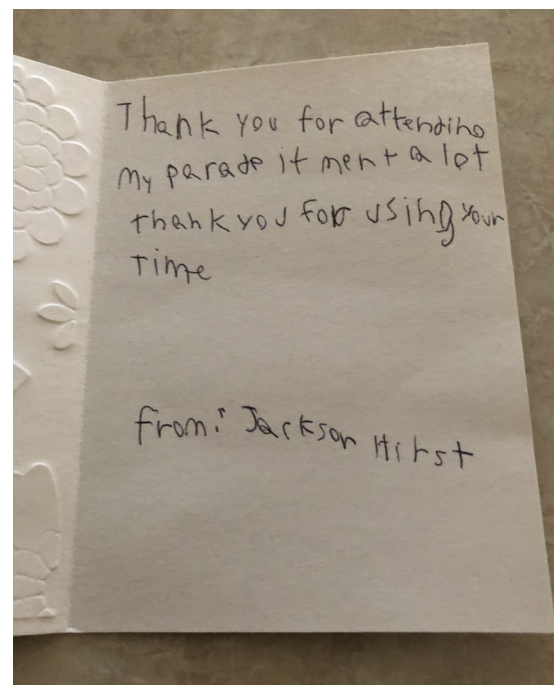 Thank you for attending
my parade it ment a lot
thank you for using your
time
from: Jackson Hirst